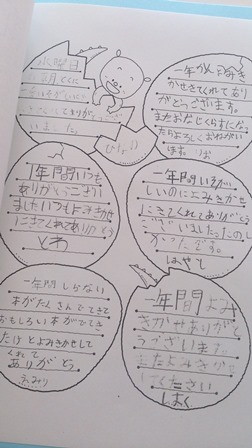 水曜日
いました。
ひより
一年かんよみき
かせきてくれてあり
がとうございます。
またおなじくらすにな
たらよろしくおねがい
します りお
1年間いつも
ありがとうござい
ましたいつもよみきかせ
にきてくれてありがとう
くわ
一年間いろが
しいのによみきかせ
にきてくれてありがとう
ございましたたのし
かったです。
はやと
一年間しらない
本がたくさんでてきて
おもしろい本がでてき
たけどよみきかせして
くれて
ありがとう
えみり
一年間よみ
きかせありがと
うございます。
またよみきかせ
してください